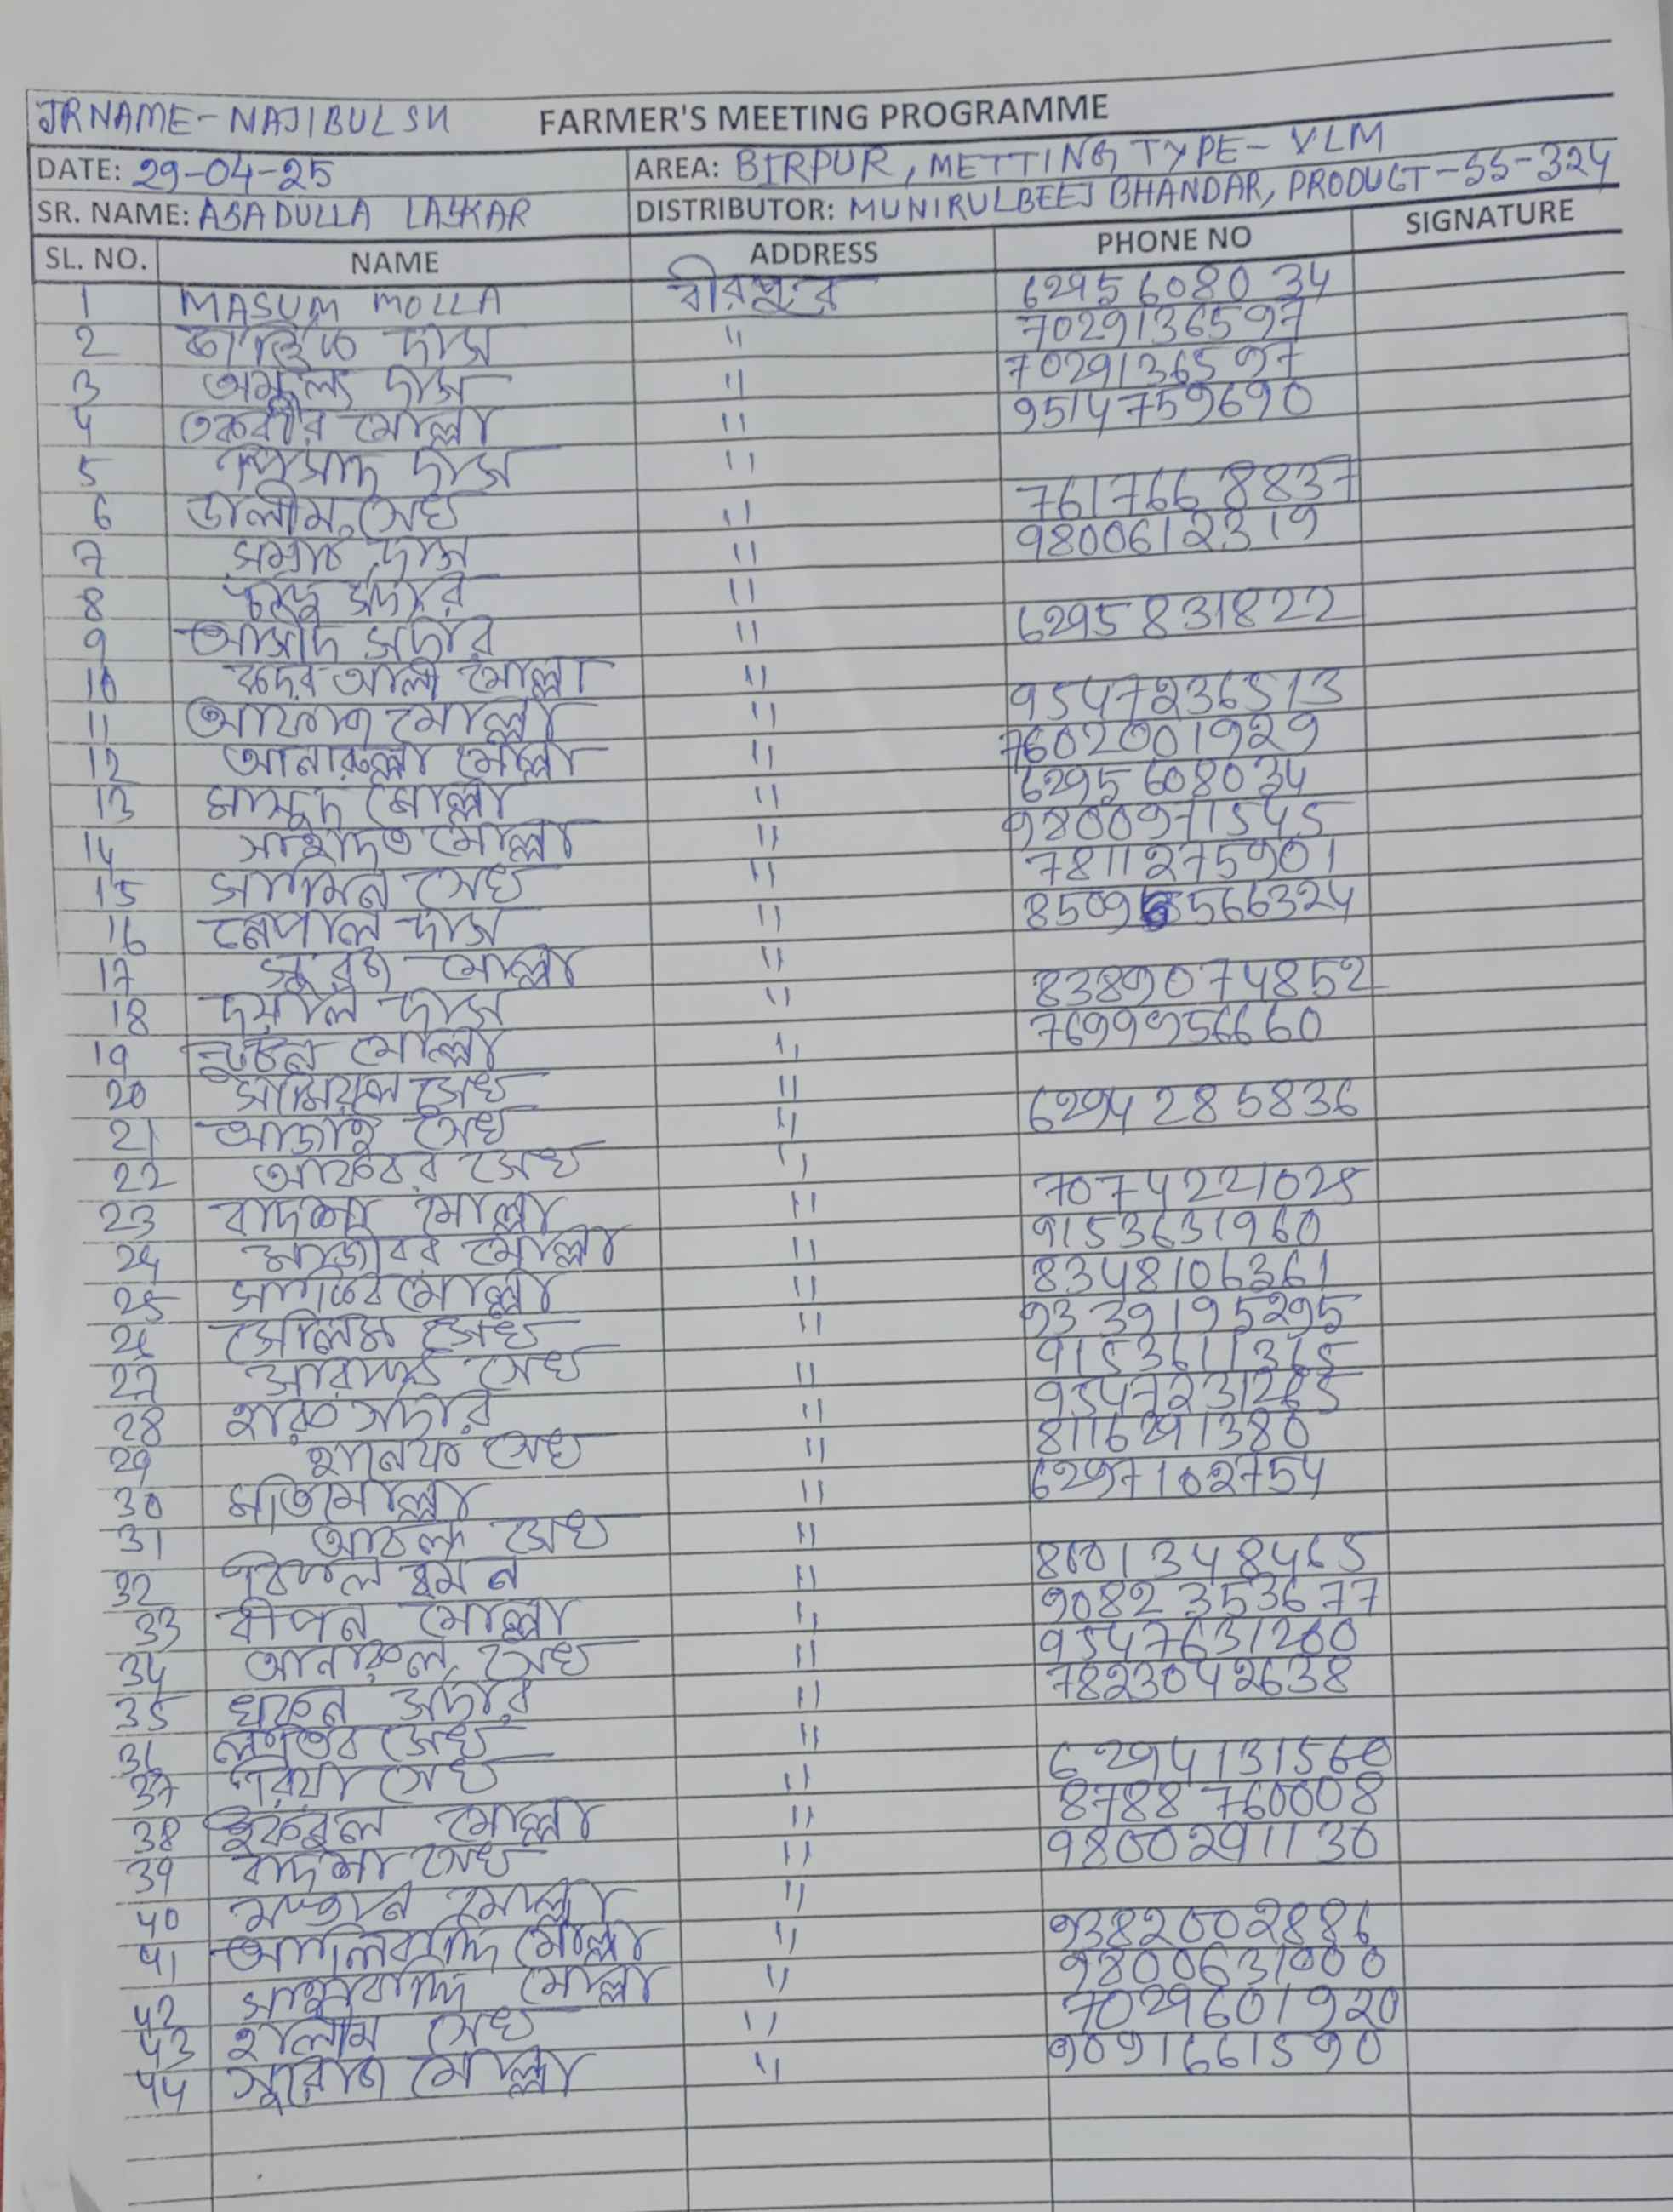 JR NAME - NAJIBUL SK FARMER'S MEETING PROGRAMME
DATE: 29-04-25 AREA: BIRPUR, METTING TYPE - VLM
SR. NAME: ASADULLA LASKAR DISTRIBUTOR: MUNIRULBEEJ BHANDAR, PRODUCT - SS-324
SL. NO. NAME ADDRESS PHONE NO SIGNATURE
1 MASUM MOLLA বীরপুর 6295608034
2 কার্ত্তিক দাস " 7029136597
3 অমূল্য দাস " 7029136597
4 তকবীর মোল্লা " 9514759690
5 দাস "
6 ডালীম সেখ " 7617668837
7 সম্রাট দাস " 9800612319
8 সর্দার "
9 আসাদ সর্দার " 6295831822
10 কদর আলী মোল্লা "
11 মোল্লা " 9547236513
12 আনারুল্লা মোল্লা " 7602001929
13 মাসুদ মোল্লা " 6295608034
14 সাহাদত মোল্লা " 9800971545
15 সামিন সেখ " 7811275901
16 নেপাল দাস " 8509566324
17 সুরজ মোল্লা "
18 দয়াল দাস " 8389074852
19 মোল্লা " 7699956660
20 সেখ "
21 সেখ " 6294285836
22 আকবর সেখ "
23 বাদশা মোল্লা " 7074221028
24 মোল্লা " 9153631960
25 মোল্লা " 8348106361
26 সেলিম সেখ " 9339195295
27 সেখ " 9153611365
28 হারু সর্দার " 9547231265
29 হানেফ সেখ " 8116291380
30 মতি মোল্লা " 6297102754
31 সেখ "
32 " 8601348465
33 বীপন মোল্লা " 9082353677
34 আনারুল সেখ " 9547631260
35 সর্দার " 7823042638
36 সেখ "
37 সেখ " 6294131560
38 মোল্লা " 8788760008
39 বাদশা সেখ " 9800291130
40 মস্তান মোল্লা "
41 মোল্লা " 9382002886
42 মোল্লা " 9800631000
43 হালীম সেখ " 7029601920
44 সুরোজ মোল্লা " 9091661590